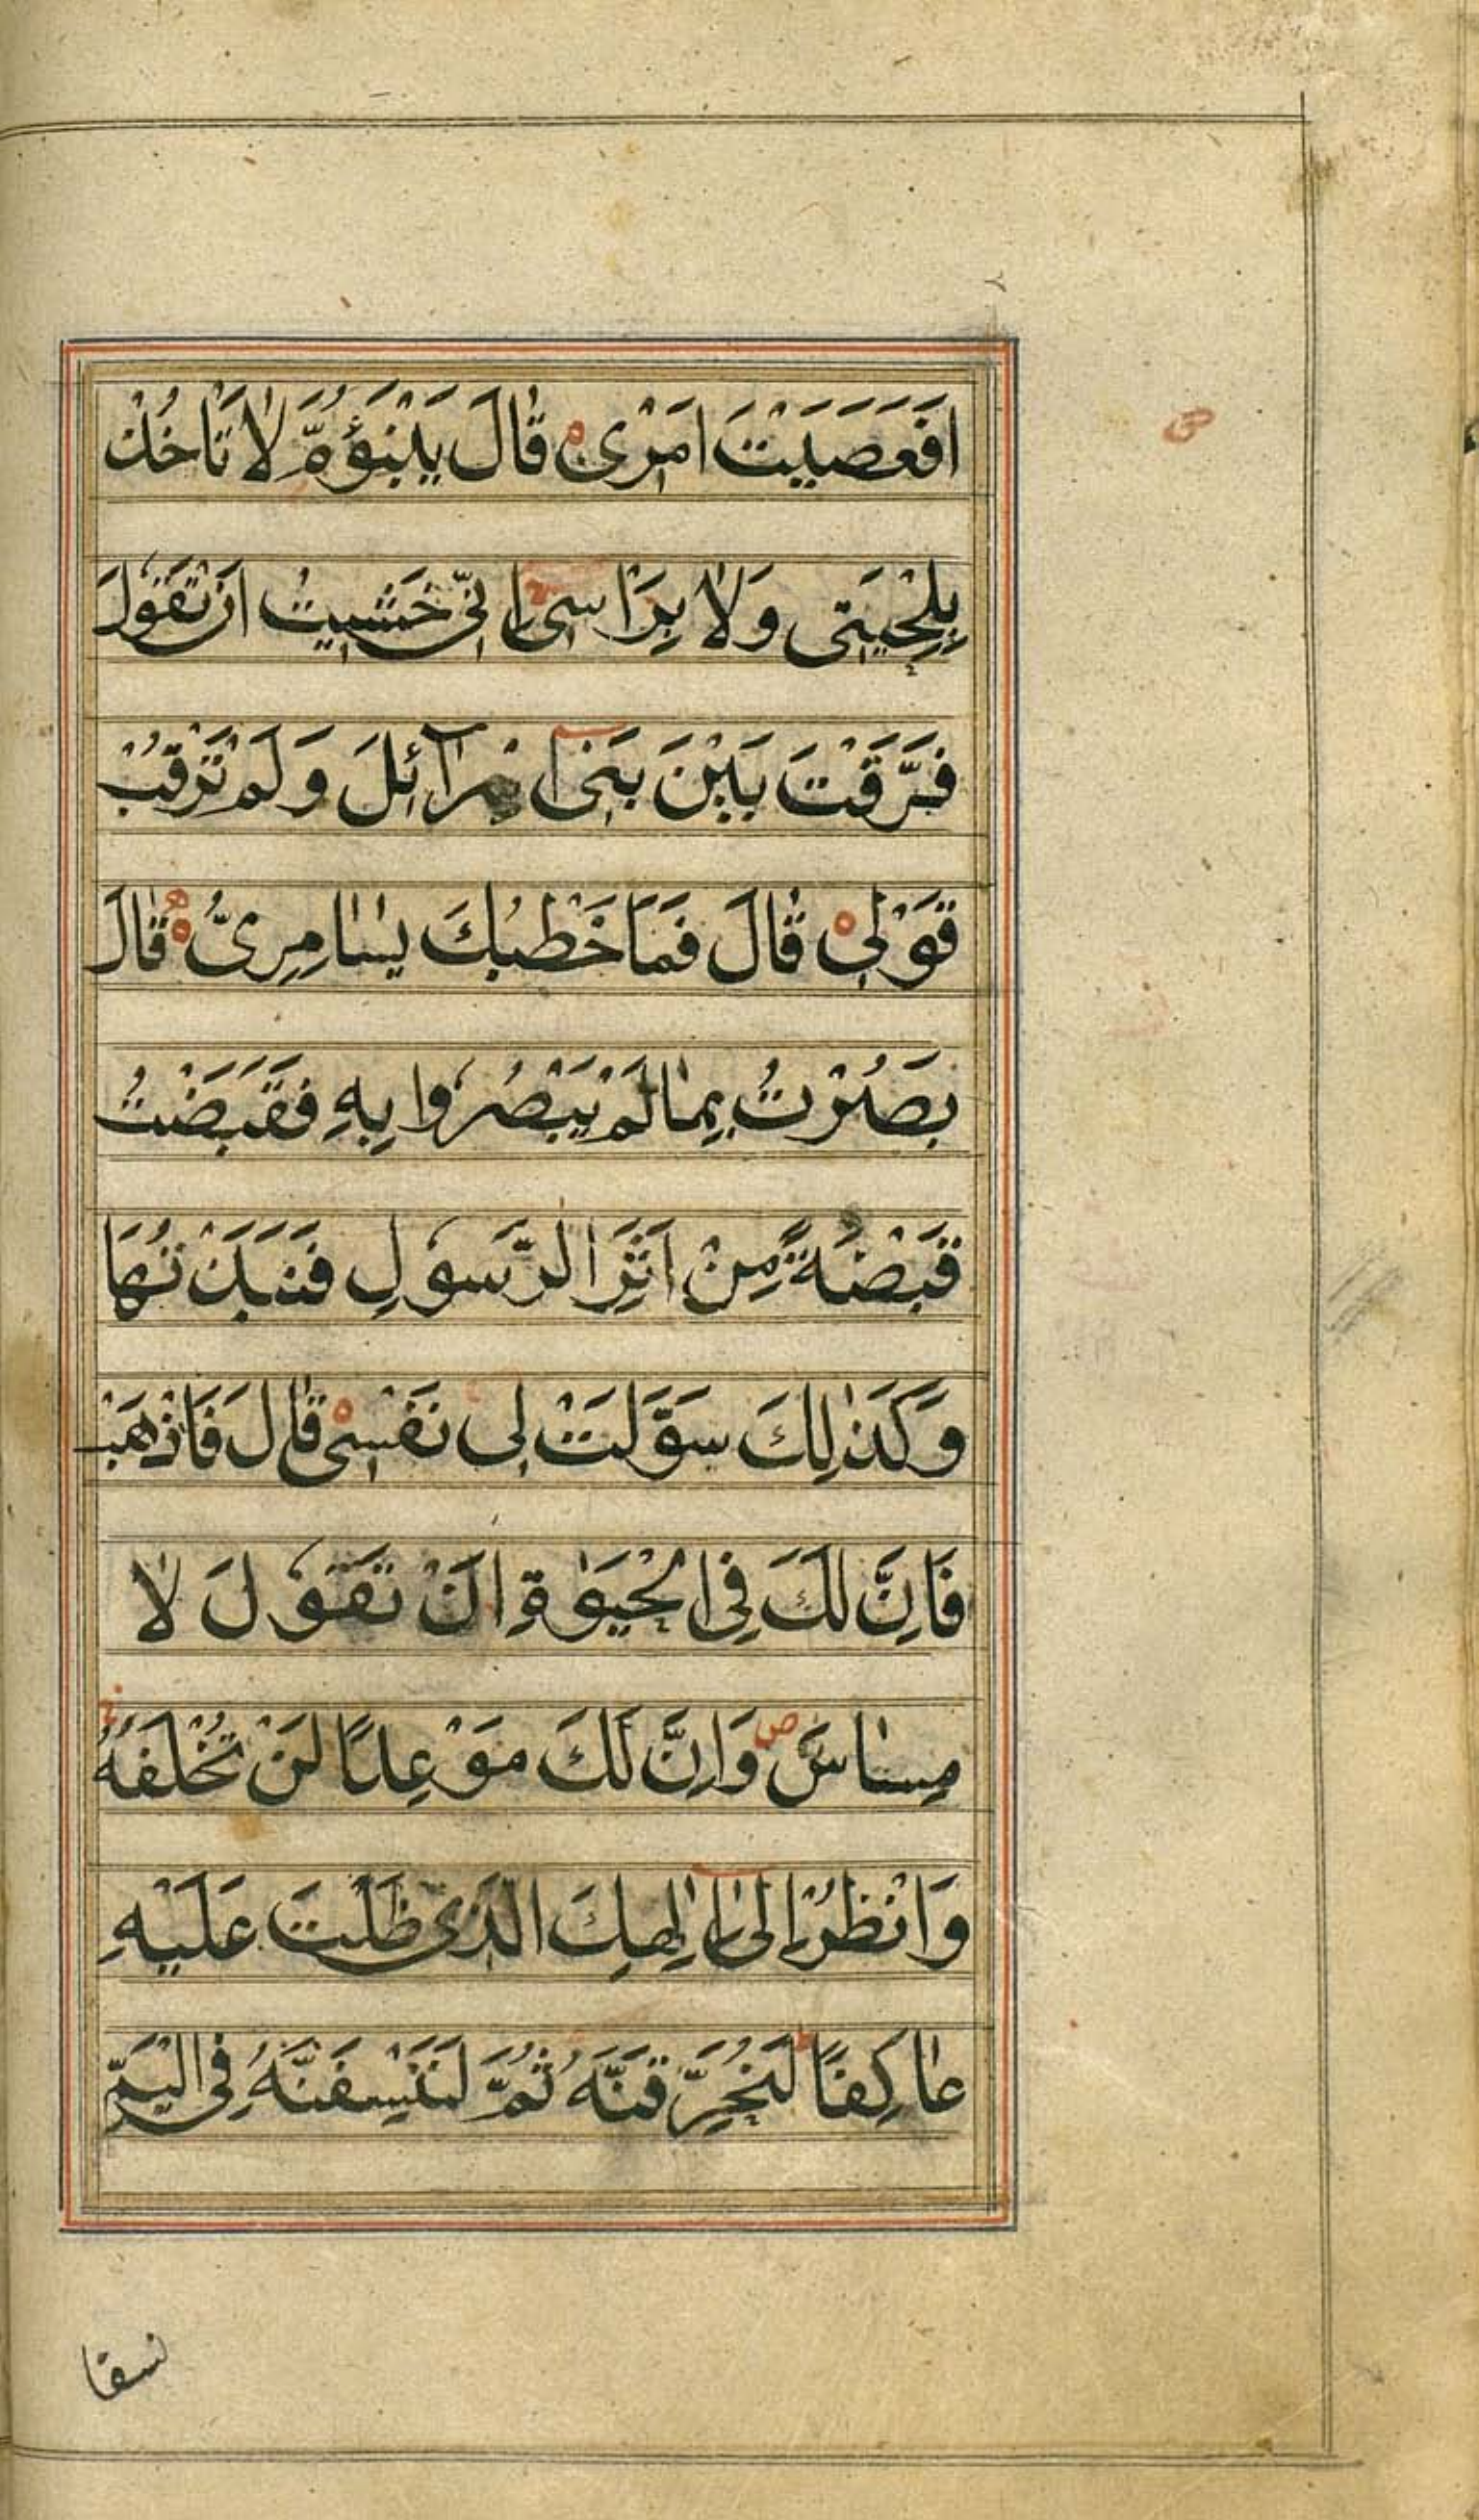 اَفَعَصَيْتَ اَمْرِیْ قَالَ يَبْنَؤُمَّ لَا تَاْخُذْ
بِلِحْيَتِیْ وَلَا بِرَاْسِیْ اِنِّیْ خَشِيْتُ اَنْ تَقُوْلَ
فَرَّقْتَ بَيْنَ بَنِیْ اِسْرَآئِلَ وَلَمْ تَرْقُبْ
قَوْلِیْ قَالَ فَمَا خَطْبُكَ يٰسَامِرِیُّ قَالَ
بَصُرْتُ بِمَا لَمْ يَبْصُرُوْا بِهٖ فَقَبَضْتُ
قَبْضَةً مِنْ اَثَرِ الرَّسُوْلِ فَنَبَذْتُهَا
وَكَذٰلِكَ سَوَّلَتْ لِیْ نَفْسِیْ قَالَ فَاذْهَبْ
فَاِنَّ لَكَ فِی الْحَيٰوةِ اَنْ تَقُوْلَ لَا
مِسَاسَ ص وَاِنَّ لَكَ مَوْعِدًا لَنْ تُخْلَفَهُ
وَانْظُرْ اِلٰی اِلٰهِكَ الَّذِیْ ظَلْتَ عَلَيْهِ
عَاكِفًا لَنُحَرِّقَنَّهُ ثُمَّ لَنَنْسِفَنَّهُ فِی الْيَمِّ
نسفا